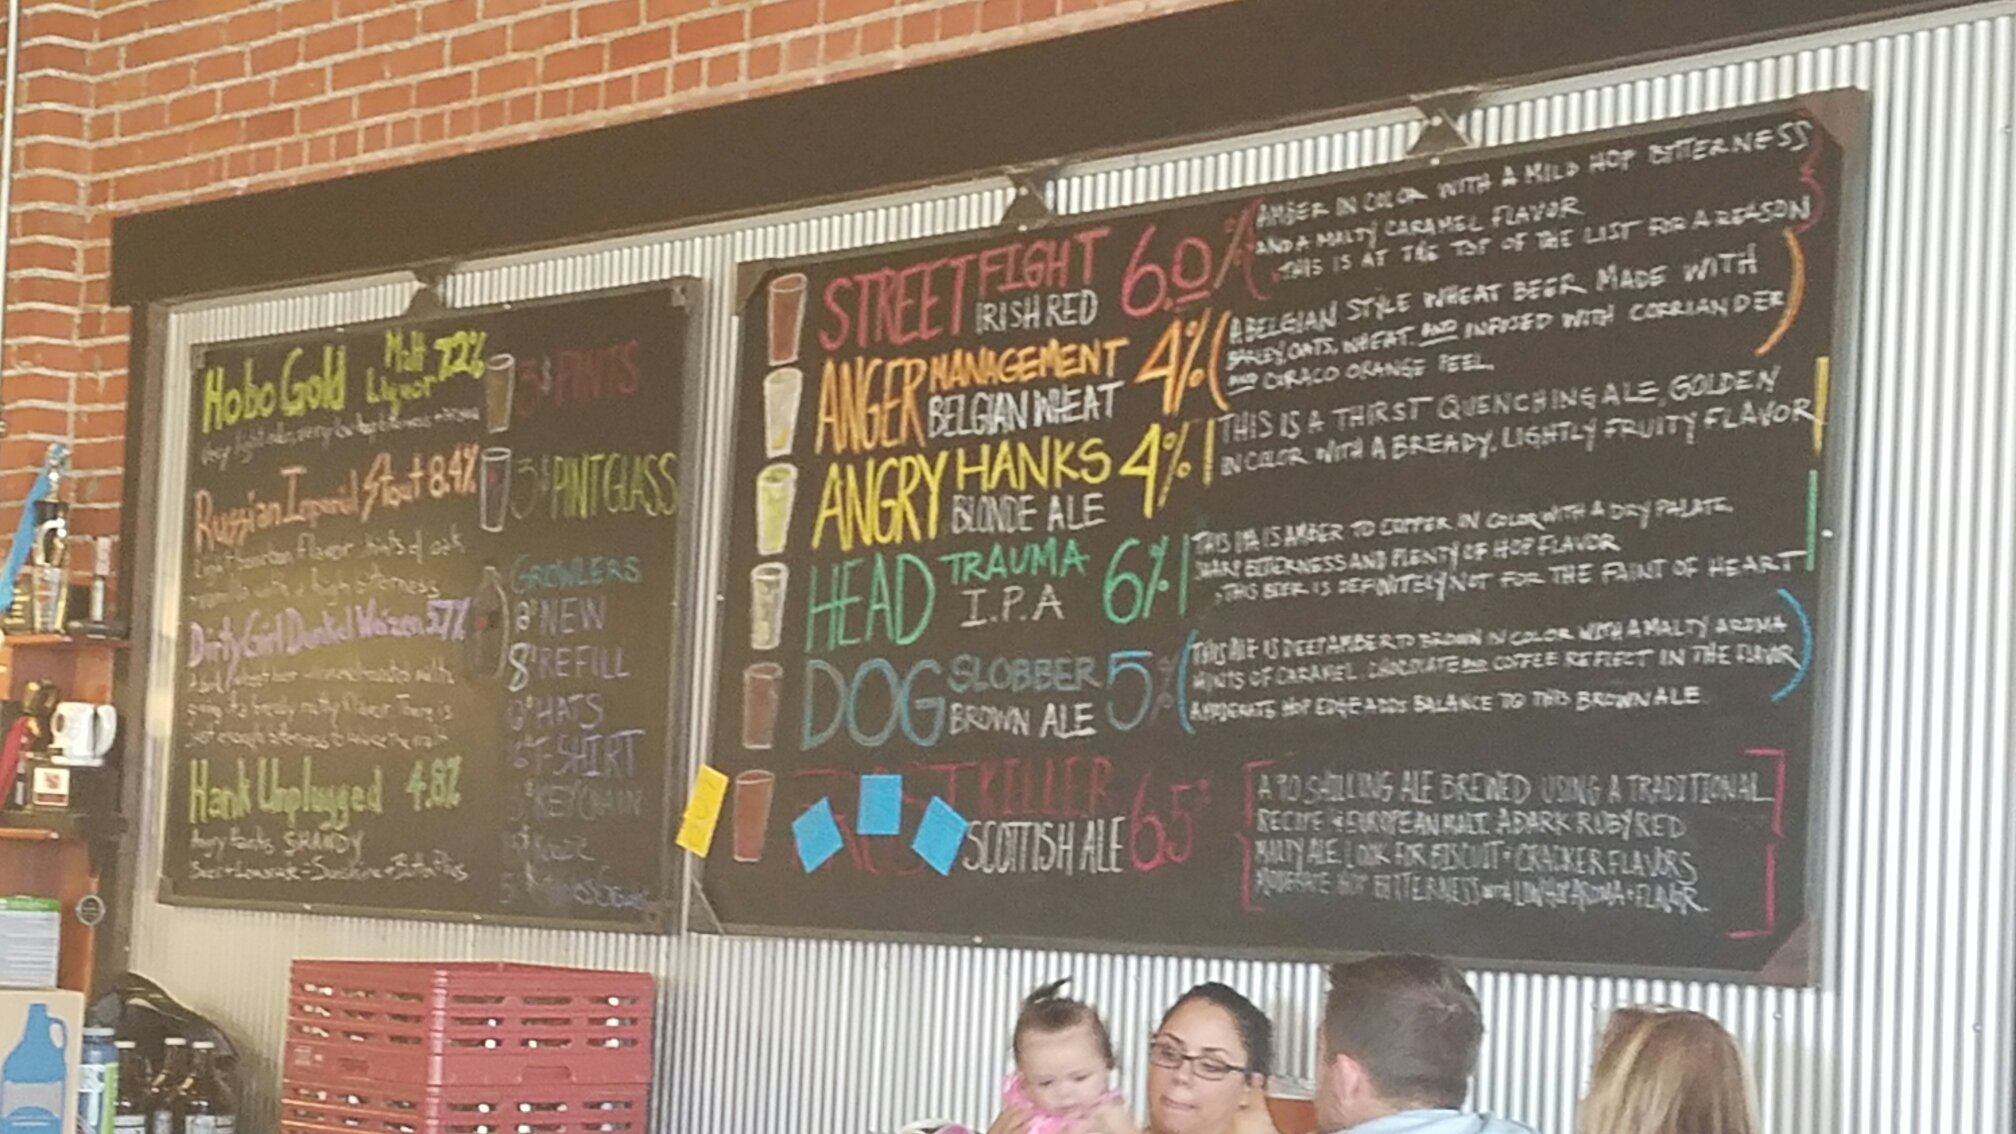 Hobo Gold Malt Liquor 7.2%
Russian Imperial Stout 8.4%
Light bourbon flavor hints of oak
with a high bitterness
Dirty Girl Dunkel Weizen 5.7%
just enough bitterness to balance the malt
Hank Unplugged 4.8%
Angry Hanks SHANDY
3$ PINTS
3$ PINT GLASS
GROWLERS
NEW
8$ REFILL
HATS
T-SHIRT
KEYCHAIN
STREET FIGHT 6.0%
IRISH RED
AMBER IN COLOR WITH A MILD HOP BITTERNESS
AND A MALTY CARAMEL FLAVOR
THIS IS AT THE TOP OF THE LIST FOR A REASON
ANGER MANAGEMENT 4%
BELGIAN WHEAT
A BELGIAN STYLE WHEAT BEER MADE WITH
BARLEY, OATS, WHEAT, AND INFUSED WITH CORRIANDER
AND CURACO ORANGE PEEL.
ANGRY HANKS 4%
BLONDE ALE
THIS IS A THIRST QUENCHING ALE, GOLDEN
IN COLOR WITH A BREADY, LIGHTLY FRUITY FLAVOR
HEAD TRAUMA 6%
I.P.A
THIS IPA IS AMBER TO COPPER IN COLOR WITH A DRY PALATE,
SHARP BITTERNESS AND PLENTY OF HOP FLAVOR
THIS BEER IS DEFINITELY NOT FOR THE FAINT OF HEART
DOG SLOBBER 5%
BROWN ALE
THIS ALE IS DEEP AMBER TO BROWN IN COLOR WITH A MALTY AROMA
HINTS OF CARAMEL, CHOCOLATE AND COFFEE REFLECT IN THE FLAVOR
A MODERATE HOP EDGE ADDS BALANCE TO THIS BROWN ALE.
KILLER 6.5%
SCOTTISH ALE
A 90 SHILLING ALE BREWED USING A TRADITIONAL
RECIPE & EUROPEAN MALT. A DARK RUBY RED
MALTY ALE. LOOK FOR BISCUIT + CRACKER FLAVORS
MODERATE HOP BITTERNESS with LOW HOP AROMA + FLAVOR.